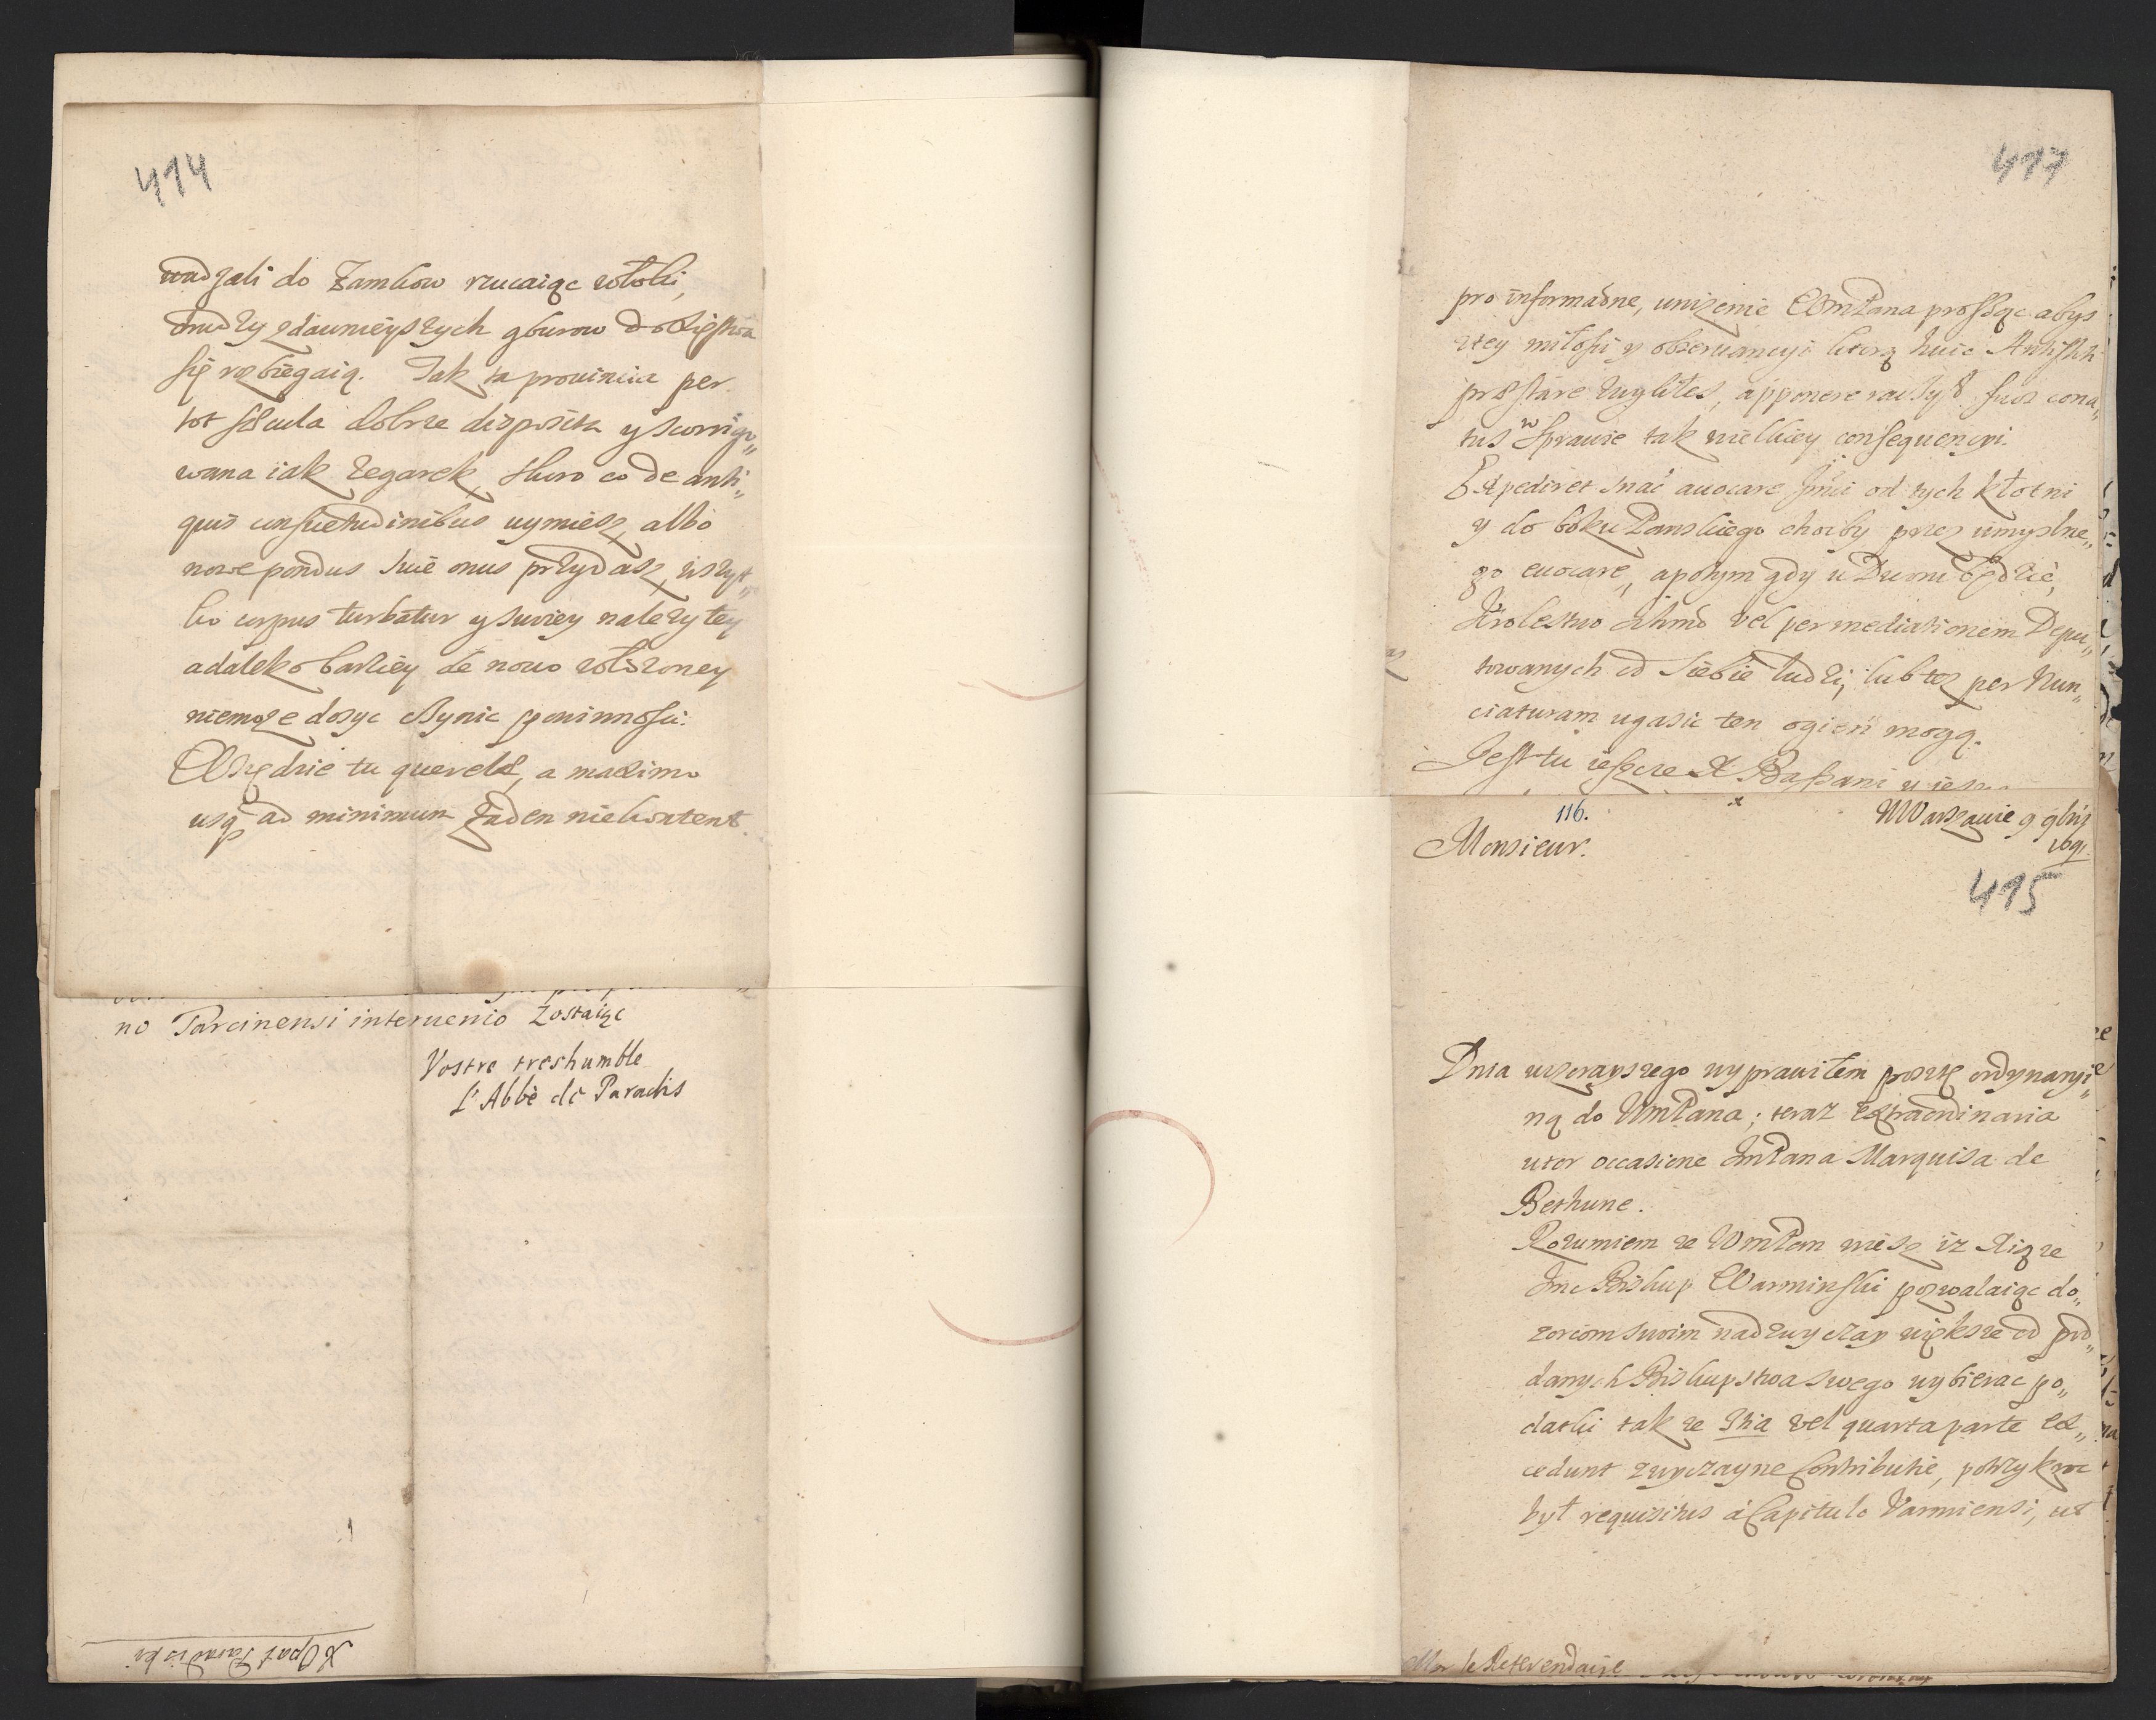 414
wadzali do Zamkow rzucaiąc włoki,
drudzy zdawnieyszych gburow do Xięstwa
się rozbiegaią. Tak ta prouincia per
tot sæcula dobrze disposita y scorrigo„
wana iak zegarek, skoro co de anti„
quis consuetudinibus uymiesz, albo
nowe pondus siue onus przydasz, wszyt„
ko corpus turbatur y swoiey nalezytey
a daleko barziey de nouo włozoney
niemoze dosyc czynic powinnosci.
Wszędzie tu querelæ, a maximo
usq ad minimum zaden niekontent.
no Parcinensi interuenio zostaiąc
Vostre treshumble
L'Abbè de Paradis
X Opat Paradiski
417
pro informaōne, unizenie WmPana prosząc abys
ztey miłosci y obseruancyi ktorą huic Antistiti
præstare zwykłes, apponere raczył suos cona„
tus w sprawie tak wielkiey consequencyi.
Expediret snać auocare Jmci od tych kłotni
y do boku Panskiego chocby przez umyslne„
go euocare, a potym gdy u Dworu będzie,
Krolestwo Ichmć vel per mediationem Depu„
towanych od siebie ludzi, lub tez per Nun„
ciaturam ugasic ten ogień mogą.
Jest tu ieszcze X Bassani y
116.
WWarszawie 9 9bris
1691
Monsieur.
415
Dnia wczorayszego wyprawiłem pocztę ordynaryi„
ną do WmPana; teraz extraordinaria
utor occasione JmPana Marquisa de
Bethune.
Rozumiem ze WmPan wiesz iz Xiąze
Jmc Biskup Warminski pozwalaiąc do„
zorcom swoim nad zwyczay większe od pod„
danych Biskupstwa swego wybierac po„
datki tak ze 3tia vel quarta parte ex„
cedunt zwyczayne Contributie, potrzykroc
był requisitus à Capitulo Varmiensi, ut
Mor le Referendaire